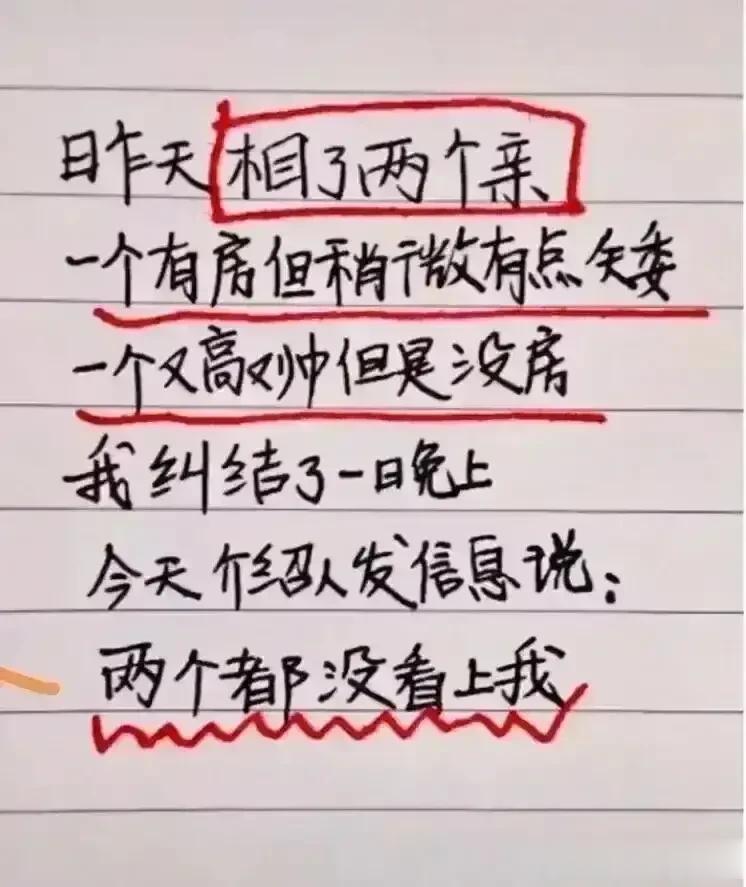 昨天相了两个亲
一个有房但稍微有点矮
一个又高又帅但是没房
我纠结了一晚上
今天介绍人发信息说：
两个都没看上我